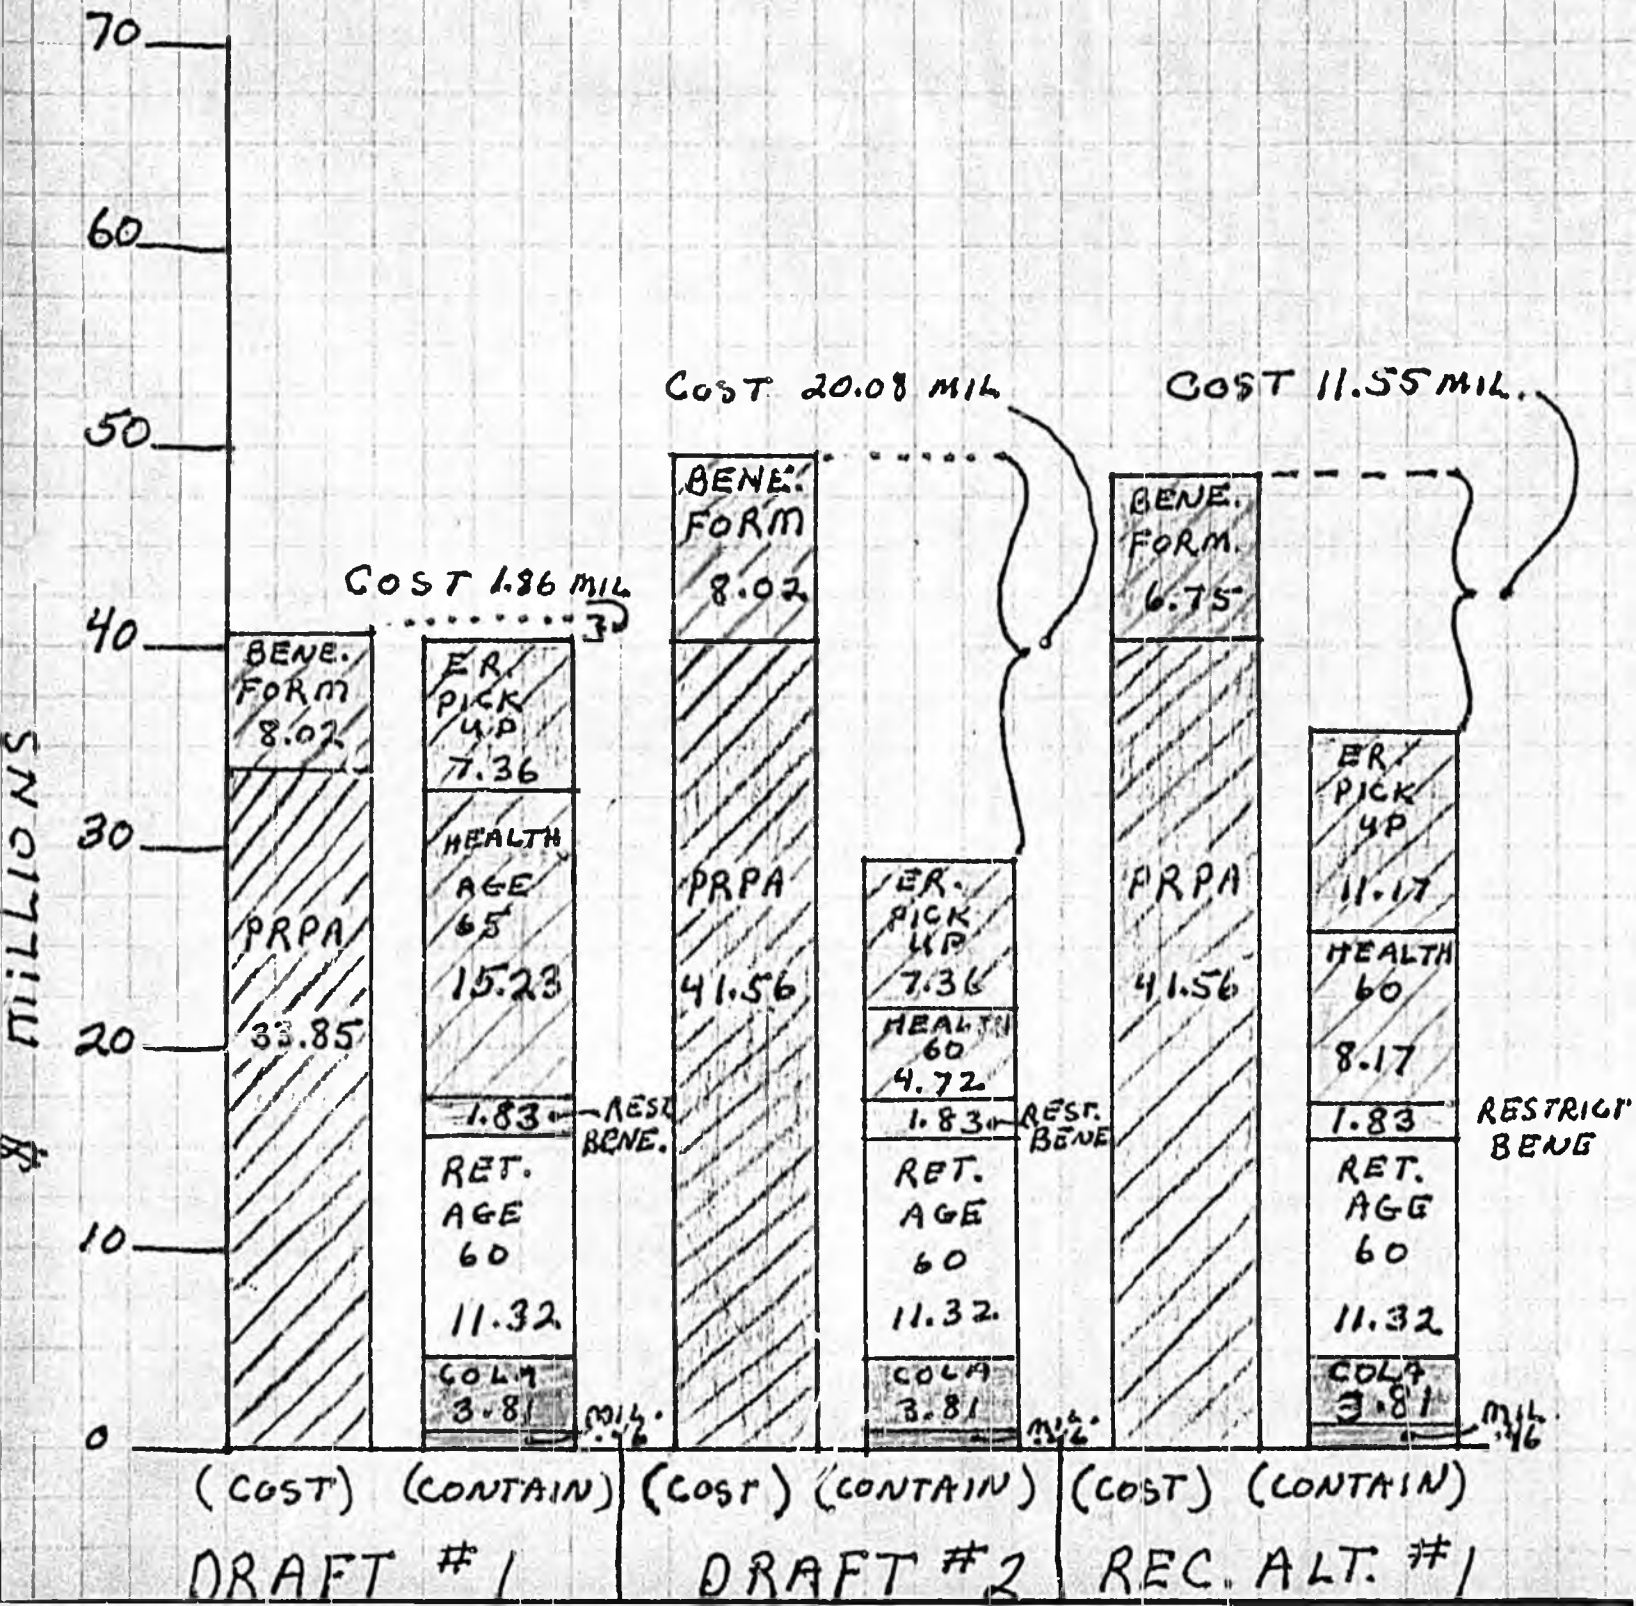 70
60
50
40
30
20
10
0
$ MILLIONS
COST 1.86 MIL
BENE.
FORM
8.02
PRPA
33.85
ER.
PICK
UP
7.36
HEALTH
AGE
65
15.23
1.83
REST
BENE.
RET.
AGE
60
11.32
COLA
3.81
MIL.
COST 20.08 MIL
BENE.
FORM
8.02
PRPA
41.56
ER.
PICK
UP
7.36
HEALTH
60
4.72
1.83
REST.
BENE
RET.
AGE
60
11.32.
COLA
3.81
MIL.
COST 11.55 MIL.
BENE.
FORM.
6.75
PRPA
41.56
ER
PICK
UP
11.17
HEALTH
60
8.17
1.83
RESTRICT
BENE
RET.
AGE
60
11.32
COLA
3.81
MIL.
(COST) (CONTAIN) (COST) (CONTAIN) (COST) (CONTAIN)
DRAFT #1 DRAFT #2 REC. ALT. #1